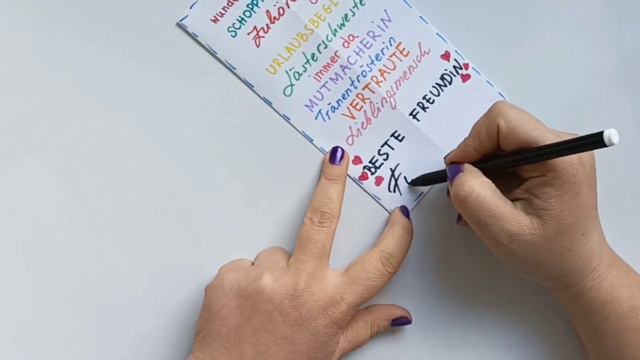 SHOPP
Zuhör
URLAUBSBEGL
Lästerschweste
immer da
MUTMACHERIN
Tränentrösterin
VERTRAUTE
Lieblingsmensch
BESTE FREUNDIN